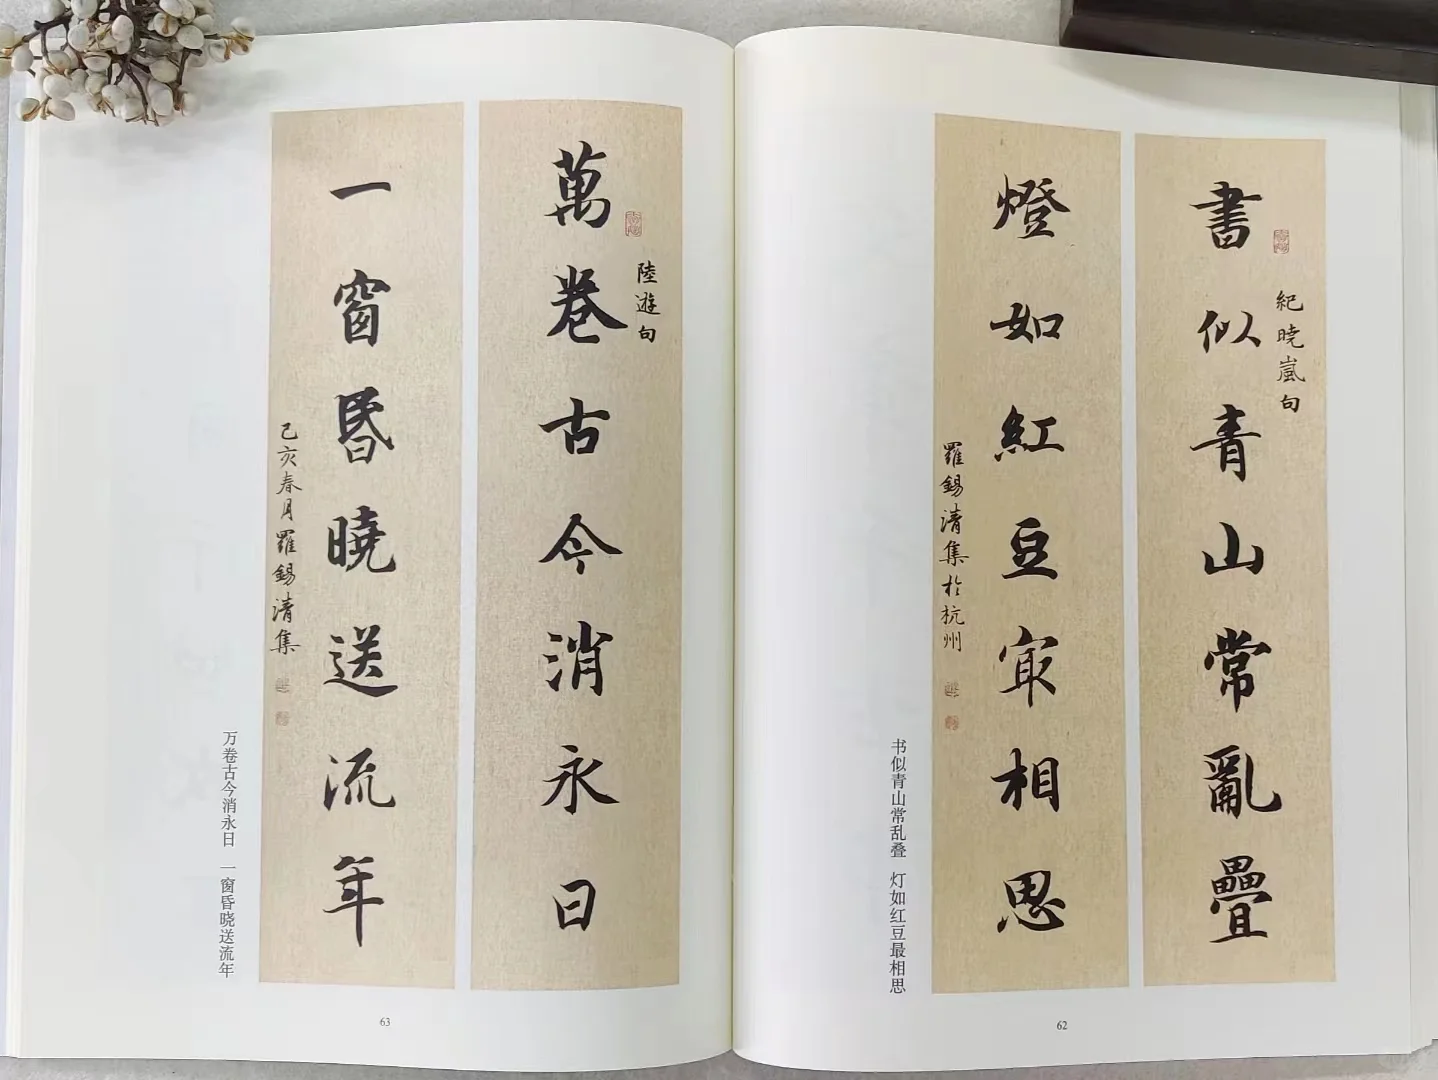 書似青山常亂疊
紀曉嵐句
燈如紅豆㝡相思
羅錫清集於杭州
书似青山常乱叠 灯如红豆最相思
62
萬卷古今消永日
陸遊句
一窗昏曉送流年
己亥春月羅錫清集
万卷古今消永日 一窗昏晓送流年
63